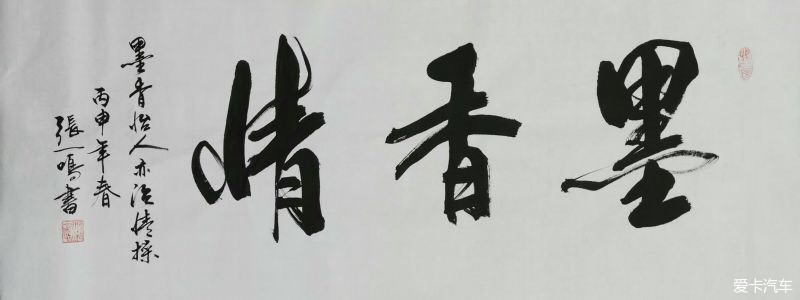 墨香情
墨香怡人亦冶情操
丙申年春
張一鳴書
爱卡汽车